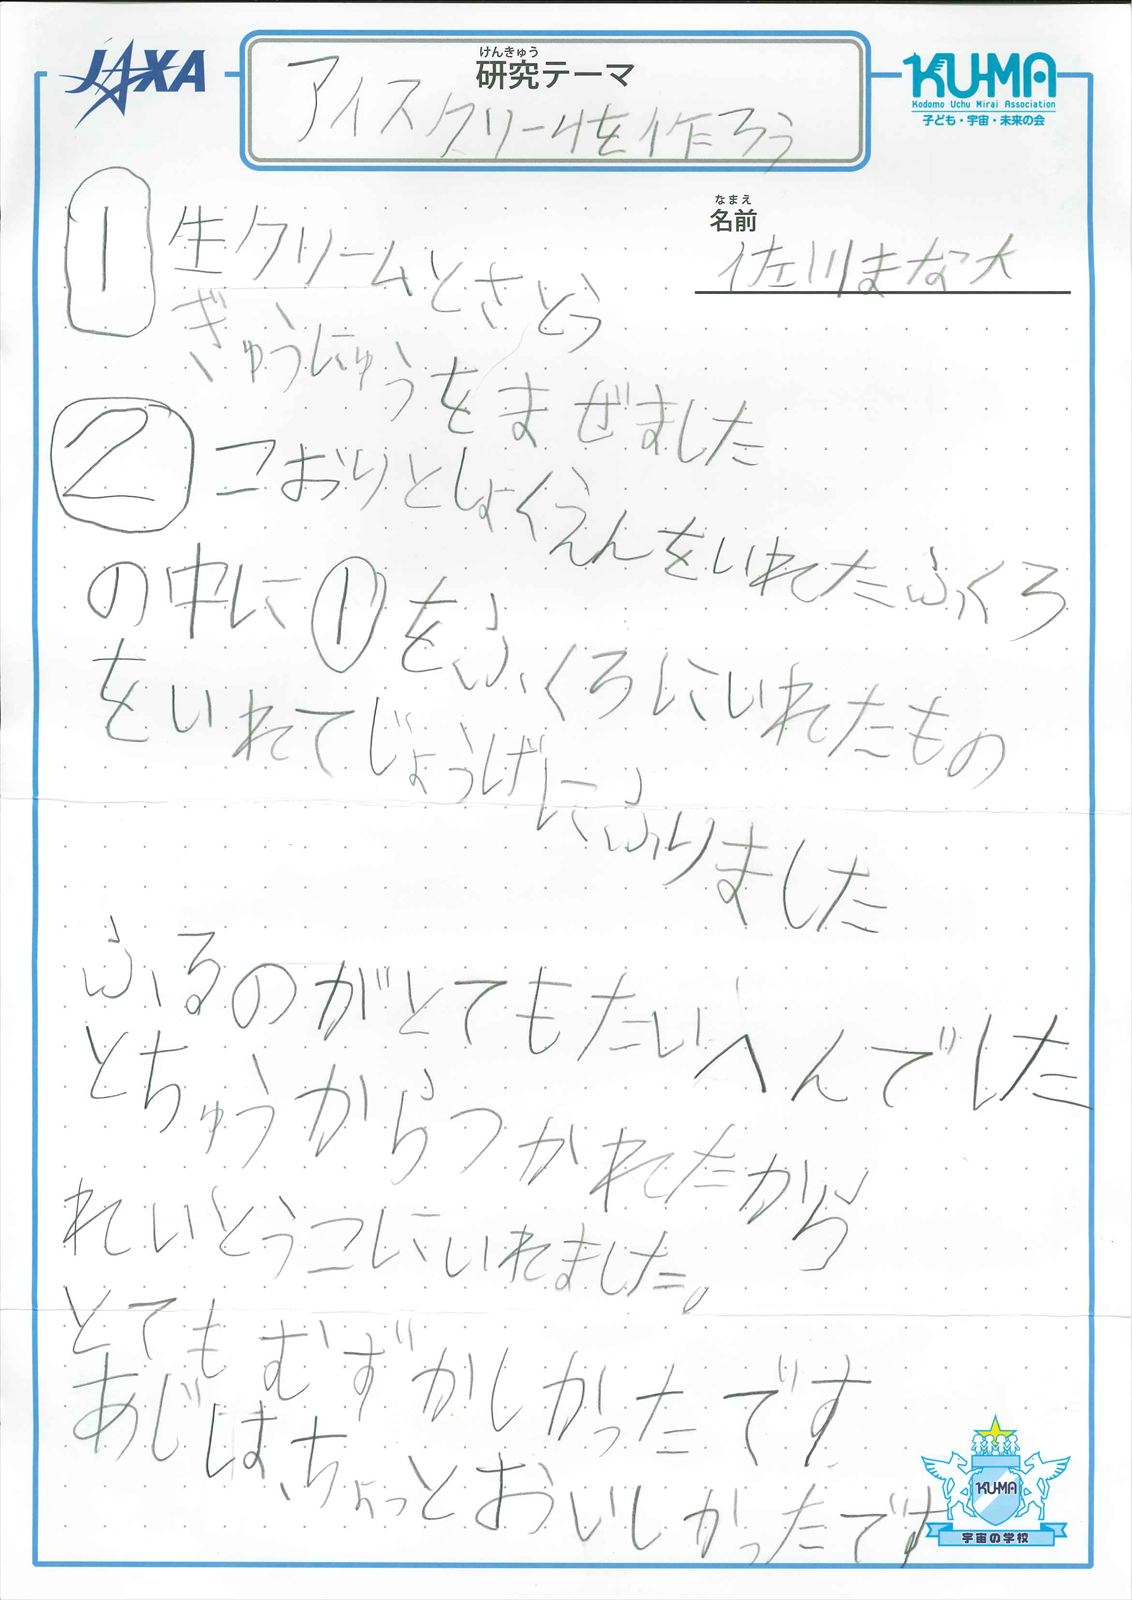 JAXA
けんきゅう
研究テーマ
アイスクリームを作ろう
KU-MA
Kodomo Uchu Mirai Association
子ども・宇宙・未来の会
なまえ
名前
佐川まな大
1 生クリームとさとう
ぎゅうにゅうをまぜました
2 こおりとしょくえんをいれたふくろ
の中に①をふくろにいれたもの
をいれてじょうげにふりました
ふるのがとてもたいへんでした
とちゅうからつかれたから
れいとうこにいれました。
とてもむずかしかったです
あじはちょっとおいしかったです
KU-MA
宇宙の学校